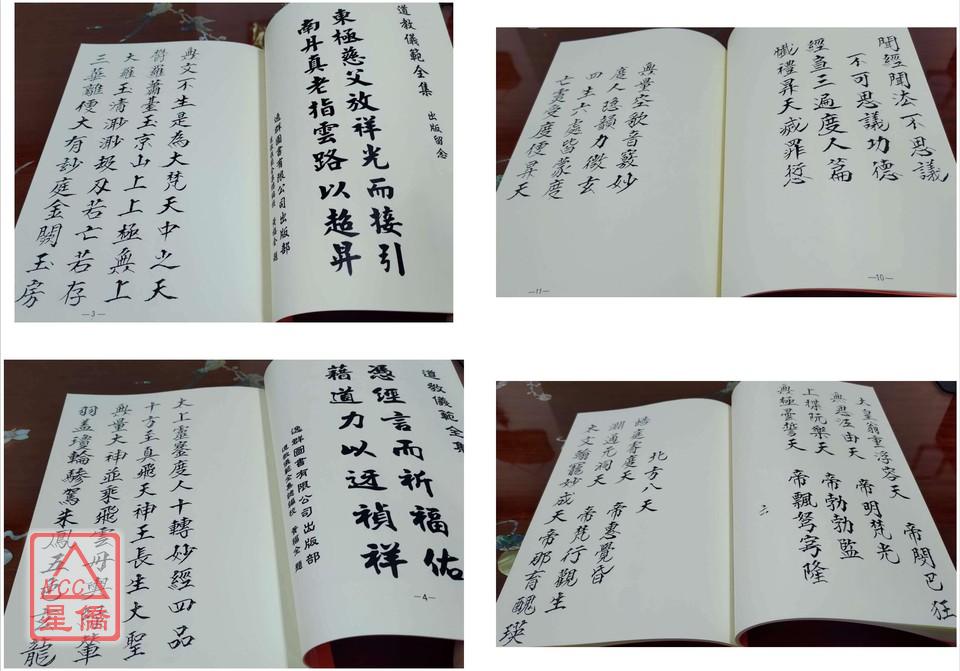 道教儀範全集
出版留念
東極慈父放祥光而接引
南丹真老指雲路以超昇
逸群圖書有限公司出版部
無文不生是為大梵天中之天
鬱羅蕭臺玉京山上上極無上
大羅玉清渺渺劫仞若亡若存
三華離便大有妙庭金闕玉房
—3—
聞經聞法不思議
不可思議功德
經宣三遍度人篇
懺禮昇天滅罪愆
—10—
無量玄歌音竅妙
度人隱韻力微玄
四生六處皆蒙度
亡靈受度便昇天
—11—
道教儀範全集
憑經言而祈福佑
藉道力以迓禎祥
逸群圖書有限公司出版部
—4—
太上靈寶度人十轉妙經四品
十方至真飛天神王長生大聖
無量大神並乘飛雲丹輿綠輦
羽蓋瓊輪驂駕朱鳳五色玄龍
NCC
星僑
太皇翁重浮容天 帝閔巴狂
無思江由天 帝明梵光
上揲阮樂天 帝勃勃監
無極曇誓天 帝飄弩穹隆
六
北方八天
皓庭霄度天 帝惠覺昏
淵通元洞天 帝梵行觀生
太文翰寵妙成天 帝那育醜瑛